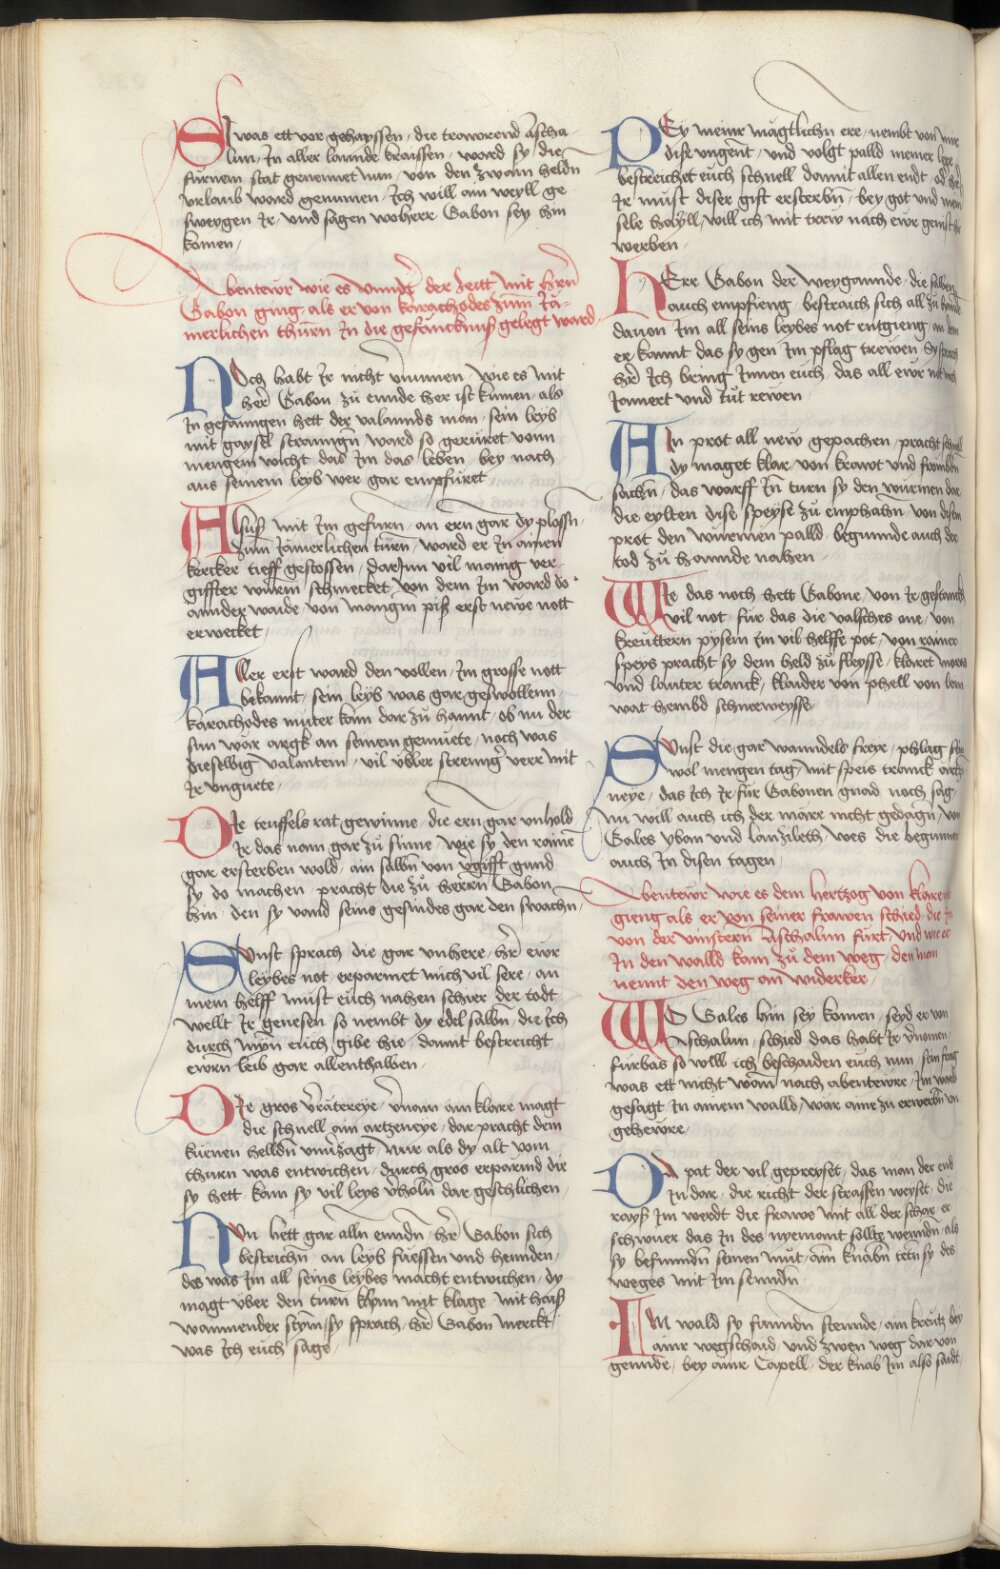 Si was ett vor gehayssen, die trawrend Ascha-
lun, In aller lannde kraissen, ward sy, die
fürnem stat genennet nun, von den zwain heldn
vrlaub ward genumen, Ich will ain weyll ge
sweygen Ir, vnd sagen wo herr Gabon sey hin
komen,
Abentewr wie es vnndter der zeitt mit hern
Gabon ging, als er von karachodes zum Ja-
merlichen thurn In die gefanncknuß gelegt ward,
Noch habt Ir nicht vernumen, wie es mit
her Gabon zu ennde her ist kumen, als
In gefanngen hett der valannds man, sein leyb
mit gayseln straimign ward so gerüret vonn
mengem wicht das Im das leben, bey nach
aus seinem leyb wer gar empfüret
Alsuß mit Im gefurn, an ern gar dy plossn,
zum Jamerlichen turn, ward er In ainen
kercker tieff gestossen, darjnn vil manig ver-
giffter wurm, schmecket, von dem Im ward do
annder waide, von mangm piß erst newe nott
erwecket,
Aller erst ward den vollen, Im grosse nott
bekannt, sein leyb was gar geswollenn,
karachodes muter kam dar zu hannt, ob nu der
sun war argk an seinem gemuete, noch was
dieselbig valantein, vil vbler strenng verr mit
Ir vnguete,
Die teuffels rat gewinne, die ern gar vnhold,
Ir das nam gar zu sinne, wie sy den raine
gar ersterben wold, ain salbn von vgifft gund
sy do machen, pracht die zu herrn Gabon
hin, den sy vand seins gesindes gar den swachn,
Sunst sprach die gar vnhere, her ewr
leybes not erparmet mich vil sere, an
mein helff must euch nahen schier der todt,
wellt Ir genesen, so nembt dy edel salbn, die Ich
durch mynn euch gibe hie, damit bestreicht
ewrn leib gar allenthalben,
Die gros verrätereye, vernam ain klare magt
die schnell ain artzeneye, dar pracht dem
kuenen helldn vnuerzagt, nur als dy alt vom
thurn was entwichen, durch gros erparmd die
sy hett, kam sy vil leys verholn dar geschlichen,
Nun hett gar alln enndn, her Gabon sich
bestrichn, an leyb fuessen vnd hennden,
des was Im all seins leybes macht entwichen, dy
magt vber den turn kham mit klage, mit haiß
wainnender stym, sy sprach, her Gabon merckt,
was Ich euch sage,
Pey meiner mägtlichn ere, nembt von mir
dise vngent, vnd volgt palld meiner lere
bestreichet euch schnell damit allen endt, od
Ir must diser gift ersterbn, bey got vnd mein
sele hayll, will ich mit trew nach ewr genist
werben,
Herr Gabon der weygannde, die salben
auch empfieng, bestraich sich all zu hannde
dauon Im all seins leybes not entgieng, an dem
er kannt das sy gen Im pflag trewen, Sy sprach
her, Ich bring Innen euch, das all ewr not mich
Jamert vnd tut rewen
Ain prot all new gepachen, pracht schnell
dy maget klar, von krawt vnd frömbdn
sachn, das warff In turn sy den würmen dar,
die eylten dise speyse zu emphahn, von disem
prot den wurmen palld, begunnde auch der
tod zu hannde nahen,
Wie das noch hett Gabone, von Ir gestanck
vil not, für das die valsches one, von
kreuttern pysem Im vil helffe pot, von rainer
speys pracht sy dem held zu fleysse, klaret moras
vnd lauter tranck, klaider von phell von lein
wat hembd schneweysse,
Sunst die gar wanndels freye, phlag sein
wol mengen tag, mit speis tranck artz-
neye, das Ich Ir für Gabonen gnad noch sag,
nu will auch ich der märe nicht gedagn, von
Gales yban vnd lanzileth, wes die begunnen
auch In disen tagen,
Abentewr wie es dem hertzog von klarem
gieng als er von seiner frawen schied, die In
von der vinstern Aschalun fürt, vnd wie er
In den walld kam zu dem weg, den man
nennt den weg an widerker,
Wo Gales hin sey komen, seyd er von
Aschalun, schied das habt Ir vernomen,
fürbas so will ich beschaiden euch nun, sein frag
was ett nicht wann nach abentewre, Im ward
gesagt In ainem walld, war aine zu erwerbn vn
gehewre,
Da pat der vil gepreyset, das man der end
In dar, die richt der strassen weyset, die
rayß Im werdt die frawe mit all der schar, er
schwuer das In des nyemant sollte wenndn, als
sy befunndn seinen mut, ain knabn tetn sy des
weges mit Im senndn,
Im wald sy funndn stennde, ain kreutz bey
ainr wegschaid, vnd zwen weg dar von
gennde, bey ainr Capell, der knab Im also saidt,